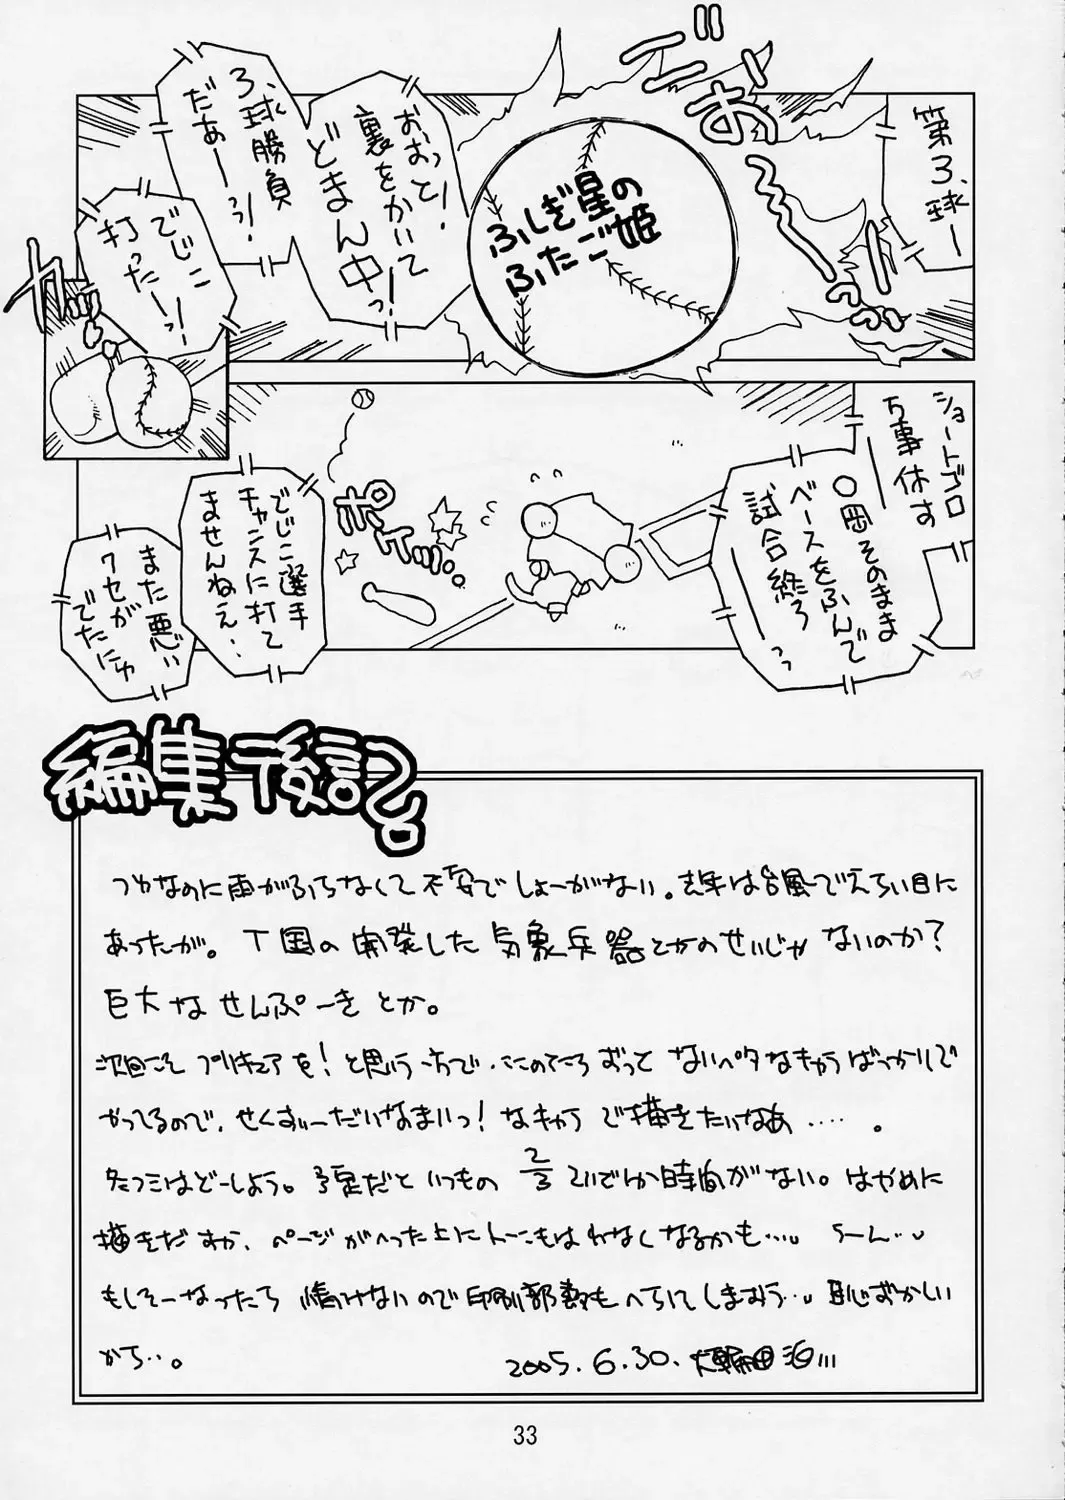 第3球ー
ごおぉ〜〜っ
ふしぎ星の
ふたご姫
おおっと!
裏をかいて
どまん中っ!
3球勝負
だぁーっっ!
でじこ
打ったーっ!
カッ
ショートゴロ
万事休す
〇岡そのまま
ベースをふんで
試合終了
ーっっ
ポケッ…
でじこ選手
チャンスに打て
ませんねえ…
また悪い
クセが
でたにゅ
編集後記。
つゆなのに雨がふらなくて不安でしょーがない。去年は台風でえらい目に
あったが。T国の開発した気象兵器とかのせいじゃないのか?
巨大なせんぷーきとか。
次回こそプリキュアを!と思う一方で、ここのところずっとないペタなキャラばっかりで
やってるので、せくすぃーだいなまいっ!なキャラで描きたいなあ……。
冬コミはどーしよう。予定だといつもの2/3ぐらいでか時間がない。はやめに
描きだすか、ページがへった上に
もしそーなったら情けないので印刷部数もへらしてしまおう…。恥ずかしい
から…。
2005.6.30.
33